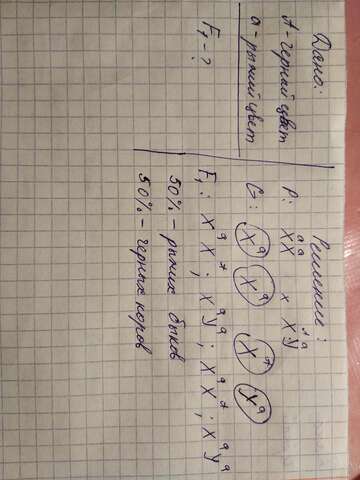 Дано:
А - черный цвет
а - рыжий цвет
F₁ - ?
Решение:
P: XᵃXᵃ x XᴬYᵃ
G: Xᵃ Xᵃ Xᴬ Xᵃ
F₁: XᵃXᴬ; XᵃYᵃ; XᵃXᴬ; XᵃYᵃ
50% - рыжих быков
50% - черных коров